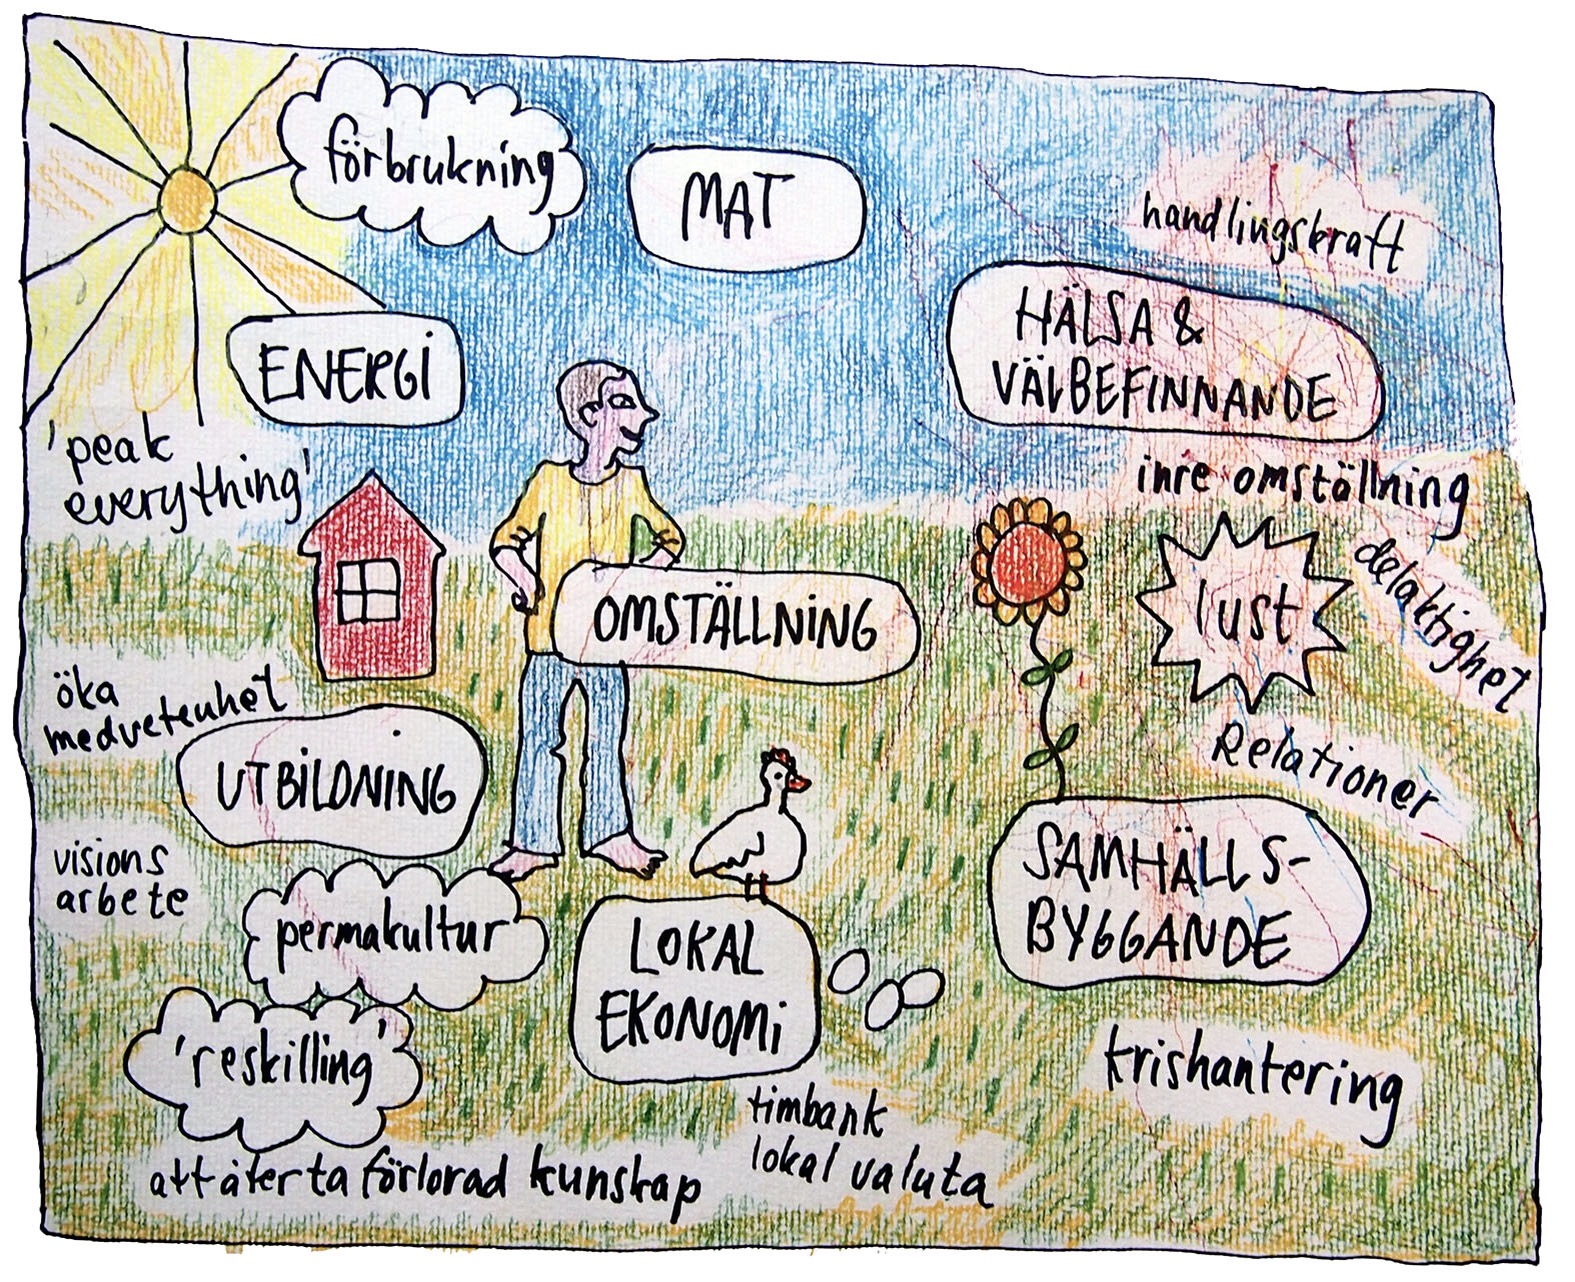 förbrukning
MAT
handlingskraft
HÄLSA &
VÄLBEFINNANDE
ENERGI
'peak
everything'
inre omställning
lust
delaktighet
OMSTÄLLNING
öka
medvetenhet
Relationer
UTBILDNING
SAMHÄLLS-
BYGGANDE
visions
arbete
permakultur
LOKAL
EKONOMI
'reskilling'
krishantering
timbank
lokal valuta
att återta förlorad kunskap